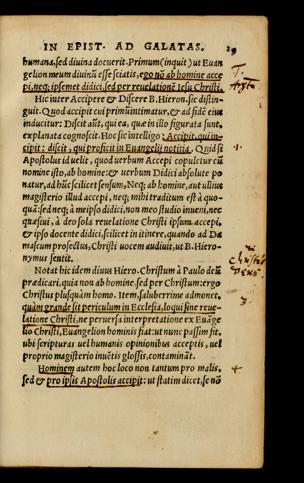 IN EPIST. AD GALATAS. 19
humana, sed diuina docuerit. Primum (inquit) ut Euan
gelion meum diuinũ esse sciatis, ego nõ ab homine acce
pi, neq; ipsemet didici, sed per reuelationẽ Iesu Christi.
Hic inter Accipere & Discere B. Hieron. sic distin-
guit. Quod accipit cui primũ intimatur, & ad fidẽ eius
inducitur: Discit autẽ, qui ea, quæ in illo figurata sunt,
explanata cognoscit. Hoc sic intelligo: Accipit, qui in-
cipit: discit, qui proficit in Euangelij notitia. Quid si
Apostolus id uelit, quod uerbum Accepi copuletur cũ
nomine isto, ab homine: & uerbum Didici absolute po
natur, ad hũc scilicet sensum, Neq; ab homine, aut ullius
magisterio illud accepi, neq; mihi traditum est à quo-
quã: sed neq; à meipso didici, non meo studio inueni, nec
quæsiui, à deo sola reuelatione Christi ipsum accepi,
& ipso docente didici, scilicet in itinere, quando ad Da
mascum profectus, Christi uocem audiuit, ut B. Hiero-
nymus sentit.
Notat hic idem diuus Hiero. Christum à Paulo deũ
prædicari, quia non ab homine, sed per Christum: ergo
Christus plusquàm homo. Item, saluberrime admonet,
quàm grande sit periculum in Ecclesia, loqui sine reue-
latione Christi, ne peruersa interpretatione ex Euãge
lio Christi, Euangelion hominis fiat: ut nunc passim fit,
ubi scripturas uel humanis opinionibus acceptis, uel
proprio magisterio inuẽtis glossis, contaminãt.
Hominem autem hoc loco non tantum pro malis,
sed & pro ipsis Apostolis accipit: ut statim dicet, se nõ